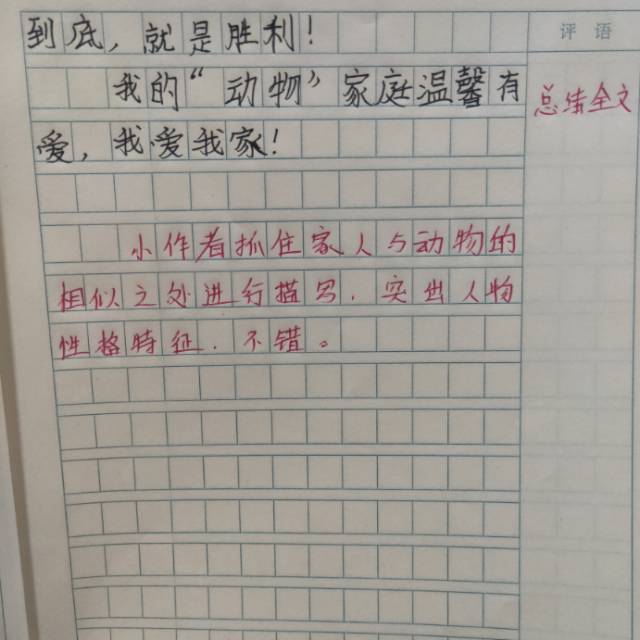 到底，就是胜利！
评语
我的“动物”家庭温馨有
总结全文
爱，我爱我家！
小作者抓住家人与动物的
相似之处进行描写，突出人物
性格特征，不错。